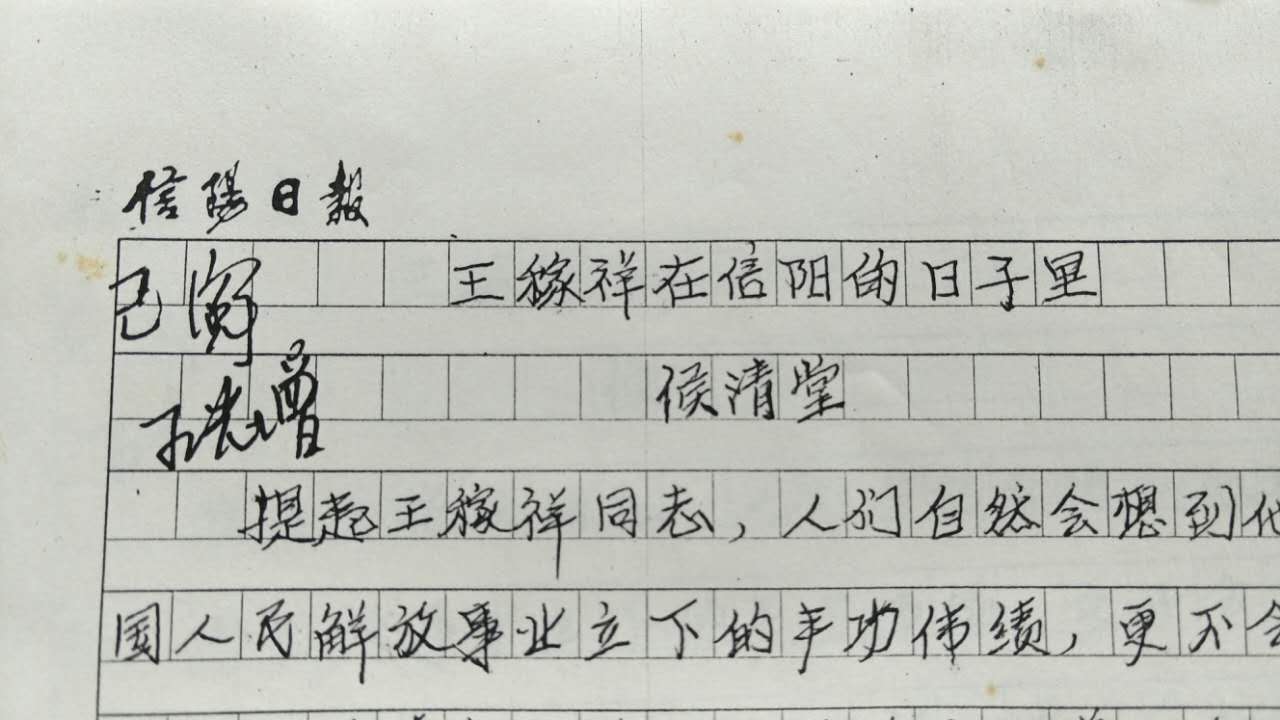 信陽日報
王稼祥在信阳的日子里
已阅
侯清堂
提起王稼祥同志，人们自然会想到他
国人民解放事业立下的丰功伟绩，更不会